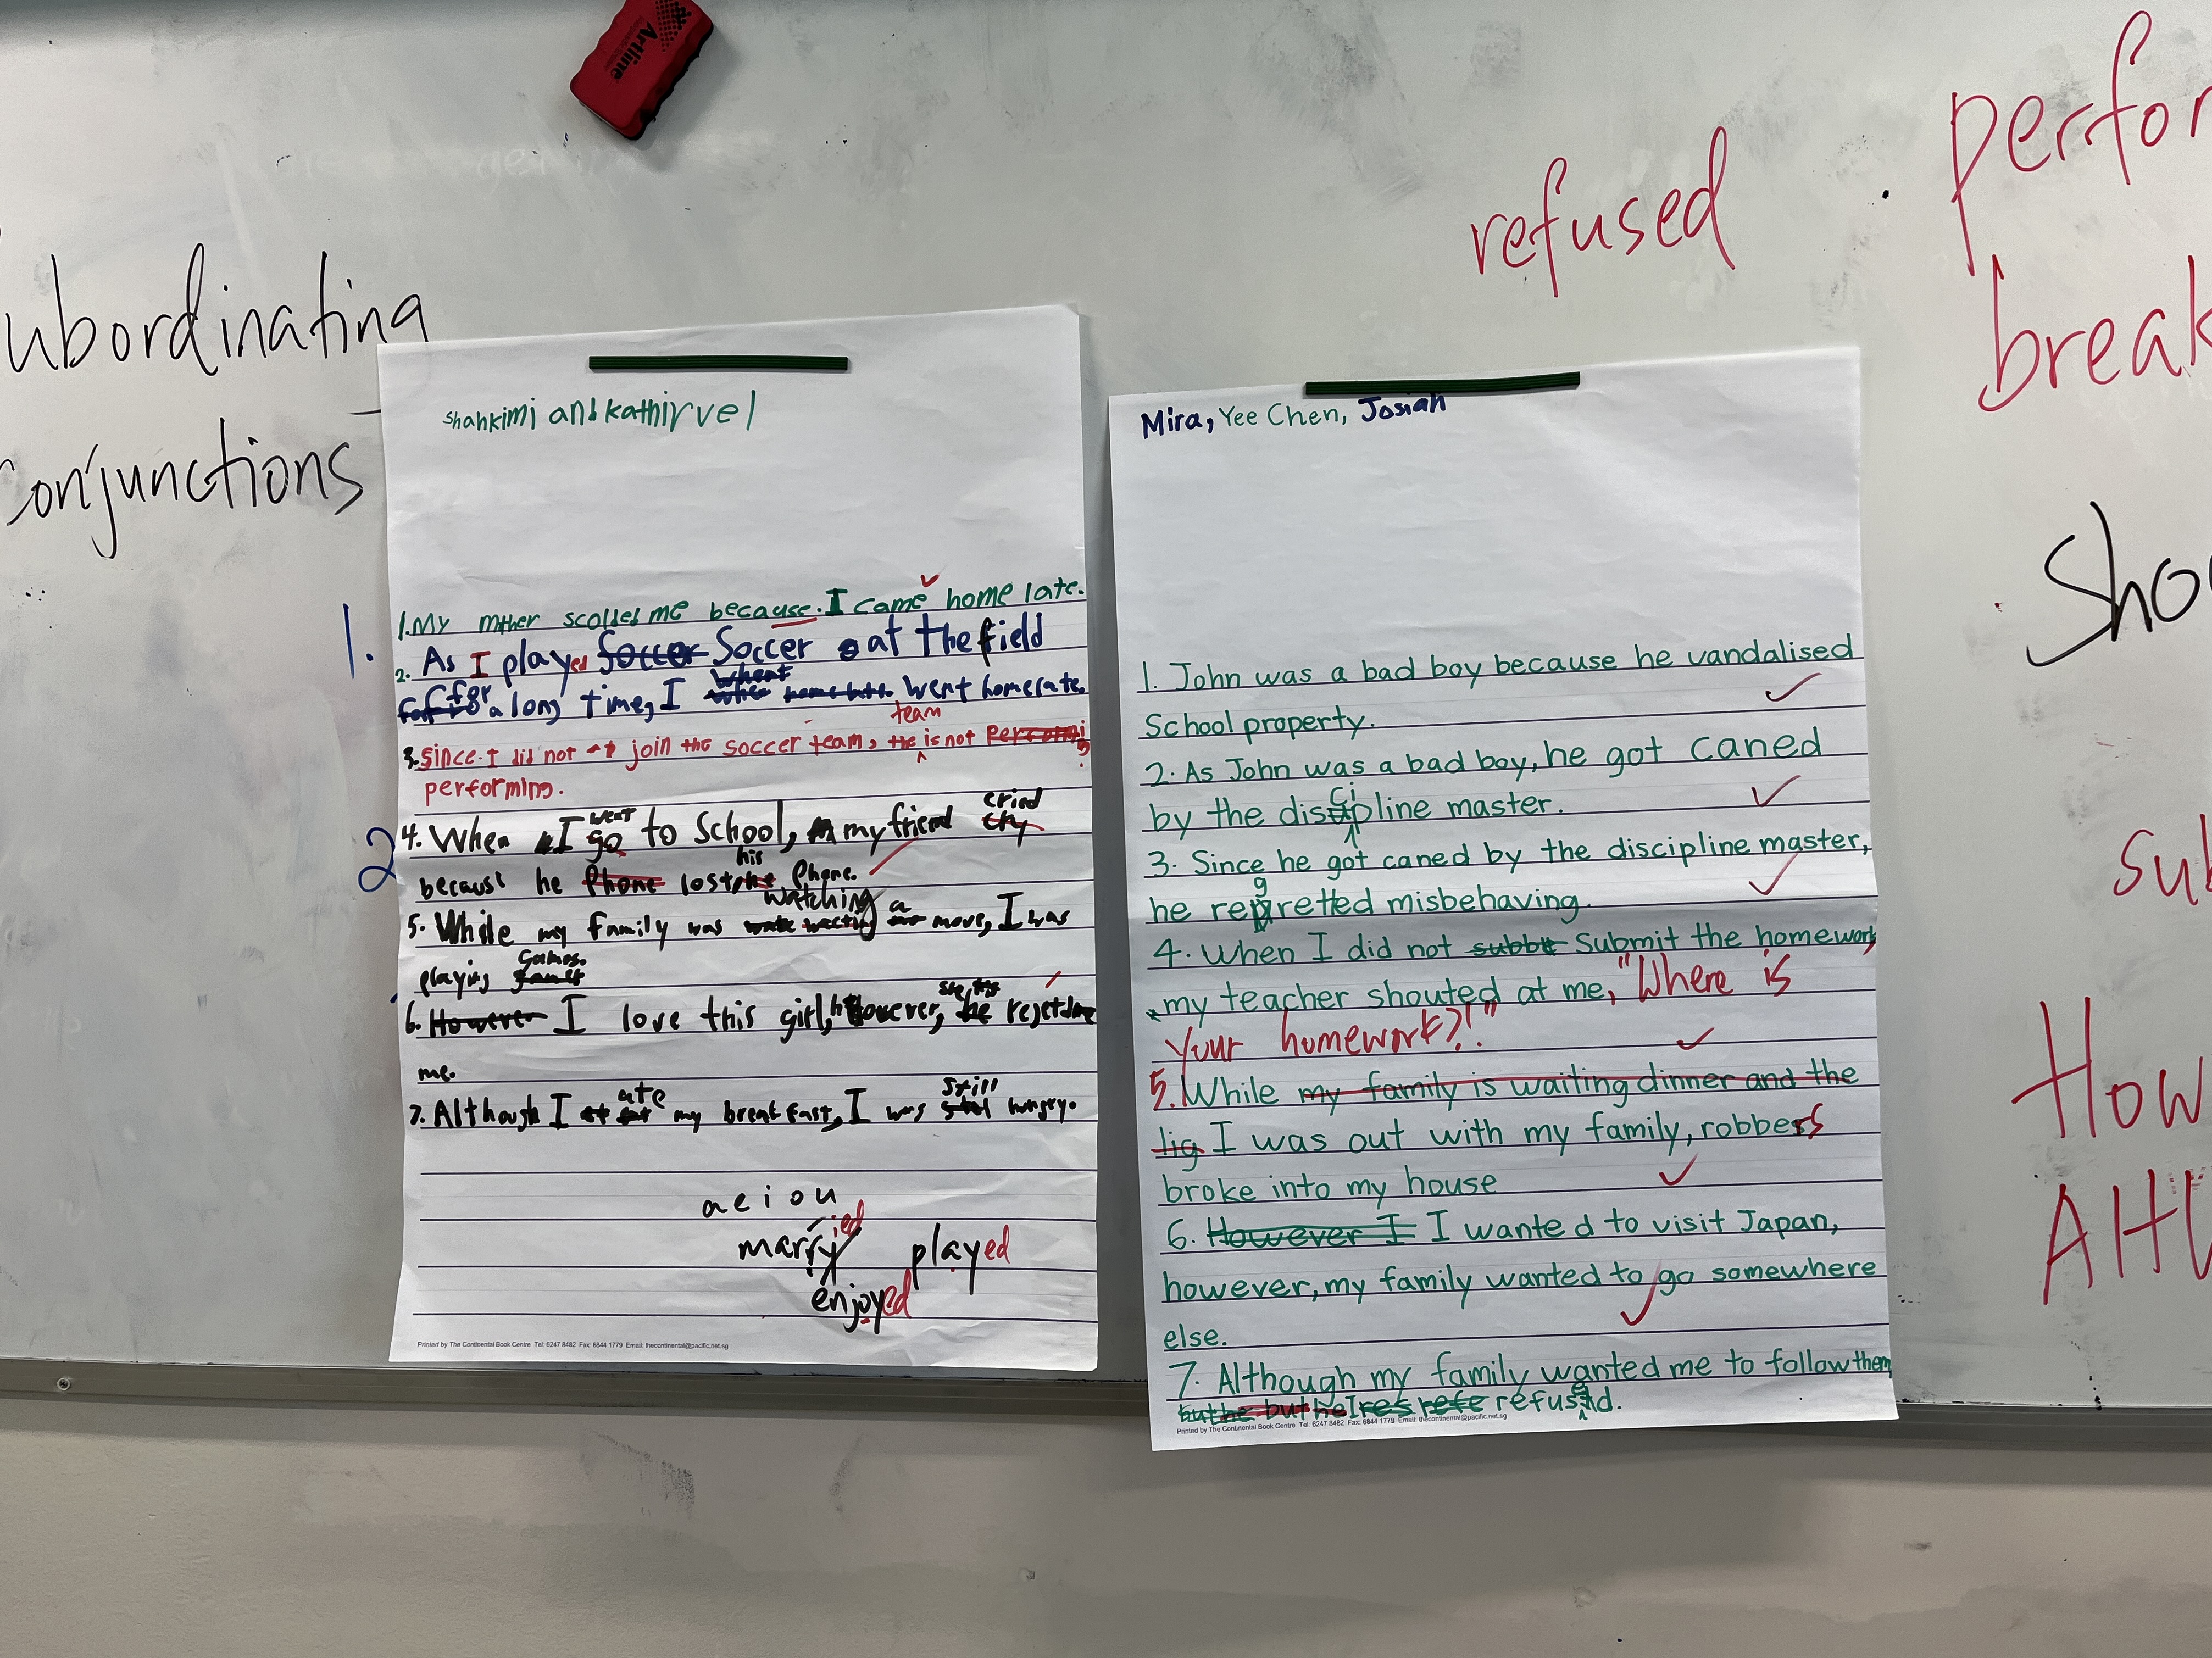 Artline
refused
perfor
break
ubordinating
conjunctions
1.
2
shankimi and kathirvel
1. My mther scolded me because. I came home late.
2. As I played soccer Soccer at the field
for a long time, I went home late.
team
3. since. I did not join the soccer team, the is not
performing.
went
cried
4. When I go to School, my friend cry
his
because he Phone lost the Phone.
watching a
5. While my family was move, I was
Games.
playing
6. However I love this girl, however, he
me.
ate
still
7. Although I my breakfast, I was hungry.
a e i o u
marryied
played
enjoyed
Printed by The Continental Book Centre Tel: 6247 8482 Fax: 6844 1779 Email: thecontinental@pacific.net.sg
Mira, Yee Chen, Josiah
1. John was a bad boy because he vandalised
School property.
2. As John was a bad boy, he got caned
by the discipline master.
3. Since he got caned by the discipline master,
he regretted misbehaving.
4. When I did not Submit the homework,
my teacher shouted at me, "Where is
your homework?!"
5. While my family is waiting dinner and the
I was out with my family, robbers
broke into my house
6. However I I wanted to visit Japan,
however, my family wanted to go somewhere
else.
7. Although my family wanted me to follow them
but he but he I res refe refused.
Printed by The Continental Book Centre Tel: 6247 8482 Fax: 6844 1779 Email: thecontinental@pacific.net.sg
Sho
sub
How